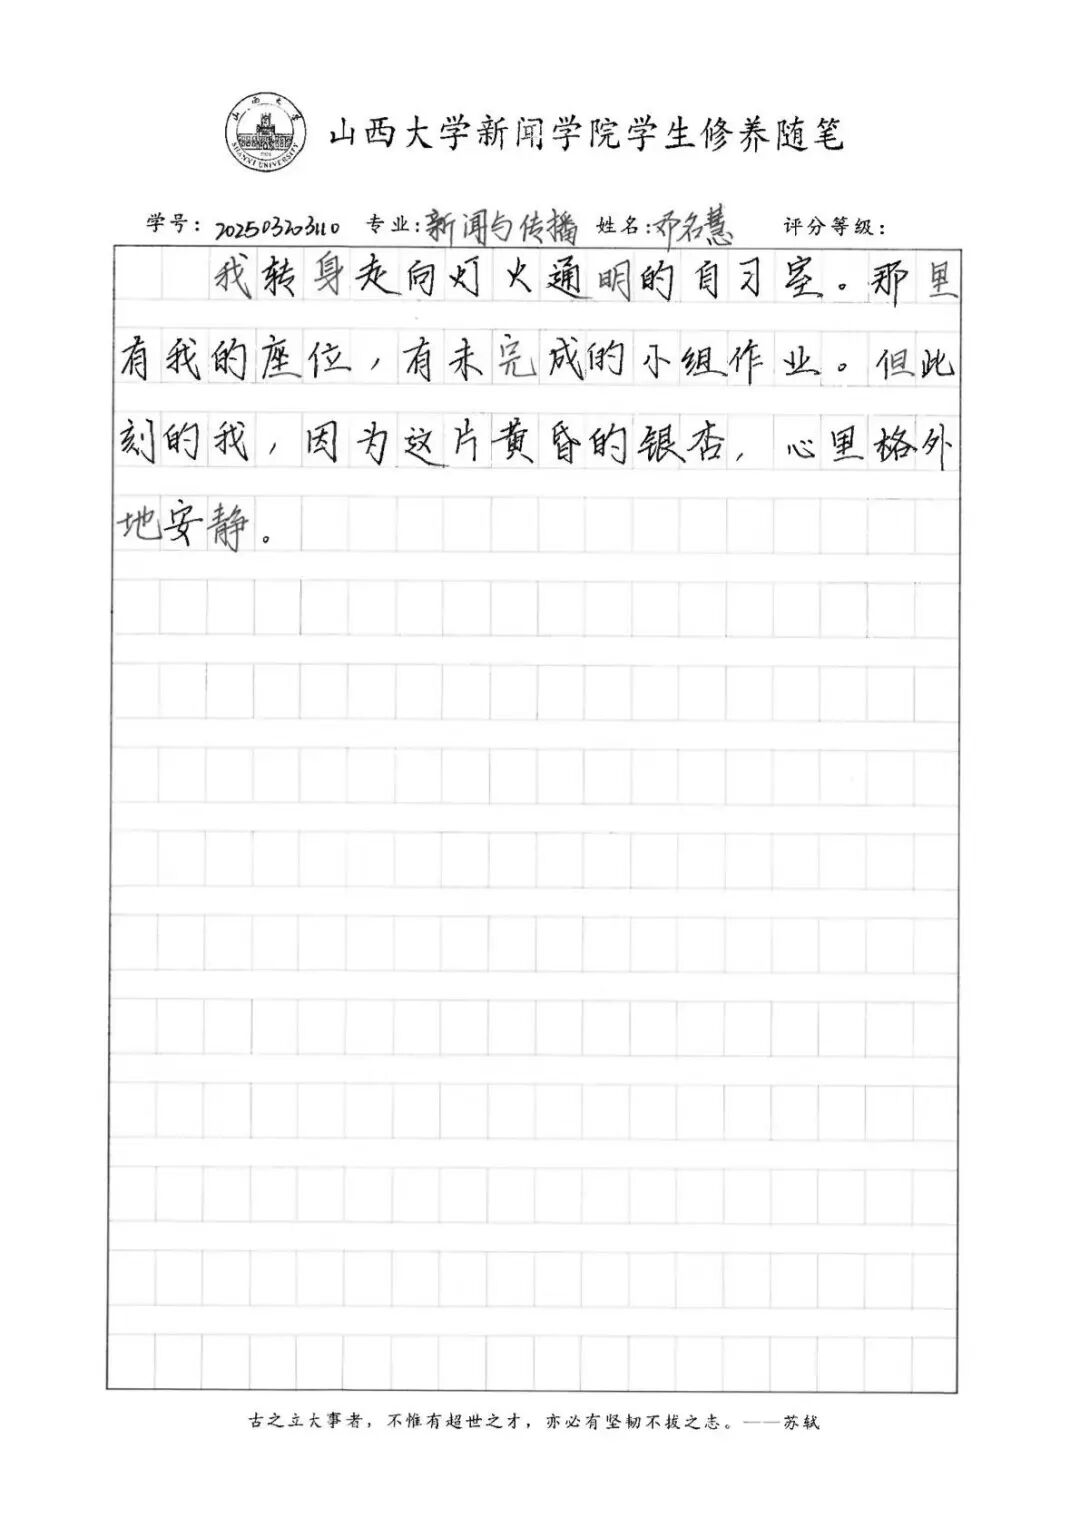 山西大学
SHANXI UNIVERSITY
山西大学新闻学院学生修养随笔
学号：202503203110 专业：新闻与传播 姓名：邓名慧 评分等级：
我转身走向灯火通明的自习室。那里
有我的座位，有未完成的小组作业。但此
刻的我，因为这片黄昏的银杏，心里格外
地安静。
古之立大事者，不惟有超世之才，亦必有坚韧不拔之志。——苏轼